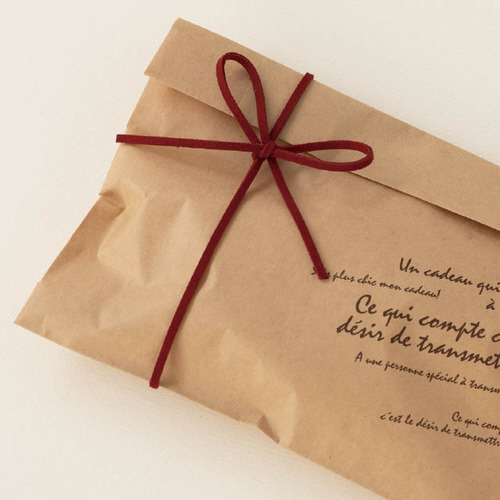 Un cadeau qui
à
plus chic mon cadeau!
Ce qui compte c
désir de transmett
A une personne spécial à transm
Ce qui comp
c'est le désir de transmettr